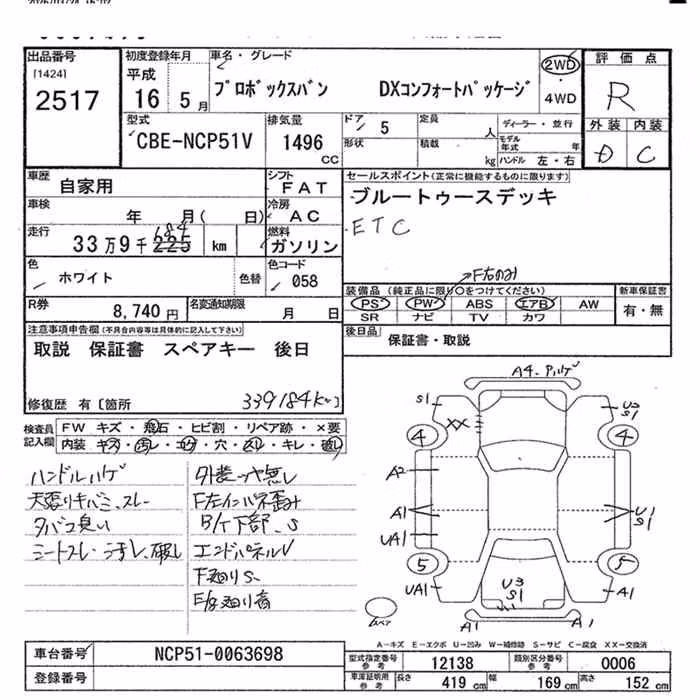 出品番号
[1424]
2517
初度登録年月
平成
16 5 月
車名・グレード
プロボックスバン DXコンフォートパッケージ
2WD
4WD
評価点
R
外装 内装
D C
型式
CBE-NCP51V
排気量
1496
CC
ドア 5
定員
人
ディーラー・並行
形状
積載
kg
モデル年式
年
ハンドル 左・右
車歴
自家用
シフト
FAT
車検
年 月( 日)
冷房
AC
走行
33万9千 225 km
184
燃料
ガソリン
色
ホワイト
色替
色コード
058
R券
8,740 円
名変通知期限
月 日
セールスポイント(正常に機能するものに限ります)
ブルートゥースデッキ
ETC
F左のみ
装備品 (純正品に限り○をつけてください)
PS PW ABS エアB AW
SR ナビ TV カワ
新車保証書
有・無
後日品
保証書・取説
注意事項申告欄(不具合内容等は具体的に記入して下さい)
取説 保証書 スペアキー 後日
修復歴 有 [箇所
339184km]
検査員
記入欄
FW キズ・飛石・ヒビ割・リペア跡・×要
内装・キズ・汚レ・コゲ・穴・スレ・キレ・破レ
ハンドルハゲ
天張りキバミ、スレ
タバコ臭い
シートスレ・汚レ、破レ
外装ツヤ無し
F左インパネ歪み
B/ゲ下部、S
エンドパネルV
F廻りS
A4.ハゲ
S1
XX
U3
S1
4
4
A2
A1
UA1
U1
S1
5
5
UA1
A1
U3
S1
A1
A1
スペア
A－キズ E－エクボ U－凹み W－補修跡 S－サビ C－腐食 XX－交換済
車台番号
NCP51-0063698
登録番号
型式指定番号
参考
12138
類別区分番号
参考
0006
車庫証明用
参考
長さ
419 cm
幅
169 cm
高さ
152 cm